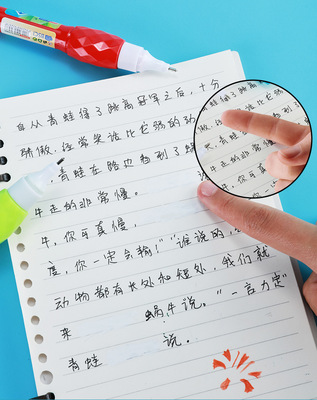 自从青蛙得了跳高冠军之后,十分
骄傲,经常笑话比它弱的动
,青蛙在路边看到了蜗
牛走的非常慢。
牛,你可真慢,
度,你一定会输!""谁说的,
动物都有长处和短处,我们就
来 蜗牛说。"一言为定"
青蛙 说。